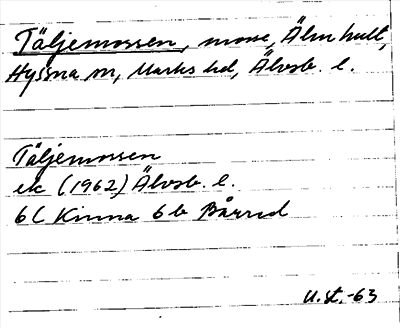 Täljemossen, mosse, Älmhult,
Hyssna sn, Marks hd, Älvsb. l.
Täljemossen
ek (1962) Älvsb. l.
6C Kinna 6b Bårred
U.st.-63